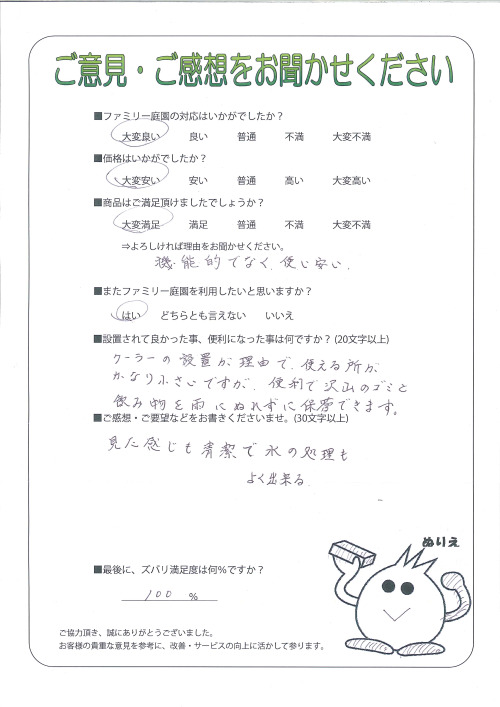 ご意見・ご感想をお聞かせください
■ファミリー庭園の対応はいかがでしたか？
大変良い 良い 普通 不満 大変不満
■価格はいかがでしたか？
大変安い 安い 普通 高い 大変高い
■商品はご満足頂けましたでしょうか？
大変満足 満足 普通 不満 大変不満
⇒よろしければ理由をお聞かせください。
機能的でなく、使い安い、
■またファミリー庭園を利用したいと思いますか？
はい どちらとも言えない いいえ
■設置されて良かった事、便利になった事は何ですか？(20文字以上)
クーラーの設置が理由で、使える所が
かなり小さいですが、便利で沢山のゴミと
飲み物を雨にぬれずに保管できます。
■ご感想・ご要望などをお書きくださいませ。(30文字以上)
見た感じも清潔で水の処理も
よく出来る
ぬりえ
■最後に、ズバリ満足度は何％ですか？
100 %
ご協力頂き、誠にありがとうございました。
お客様の貴重な意見を参考に、改善・サービスの向上に活かして参ります。